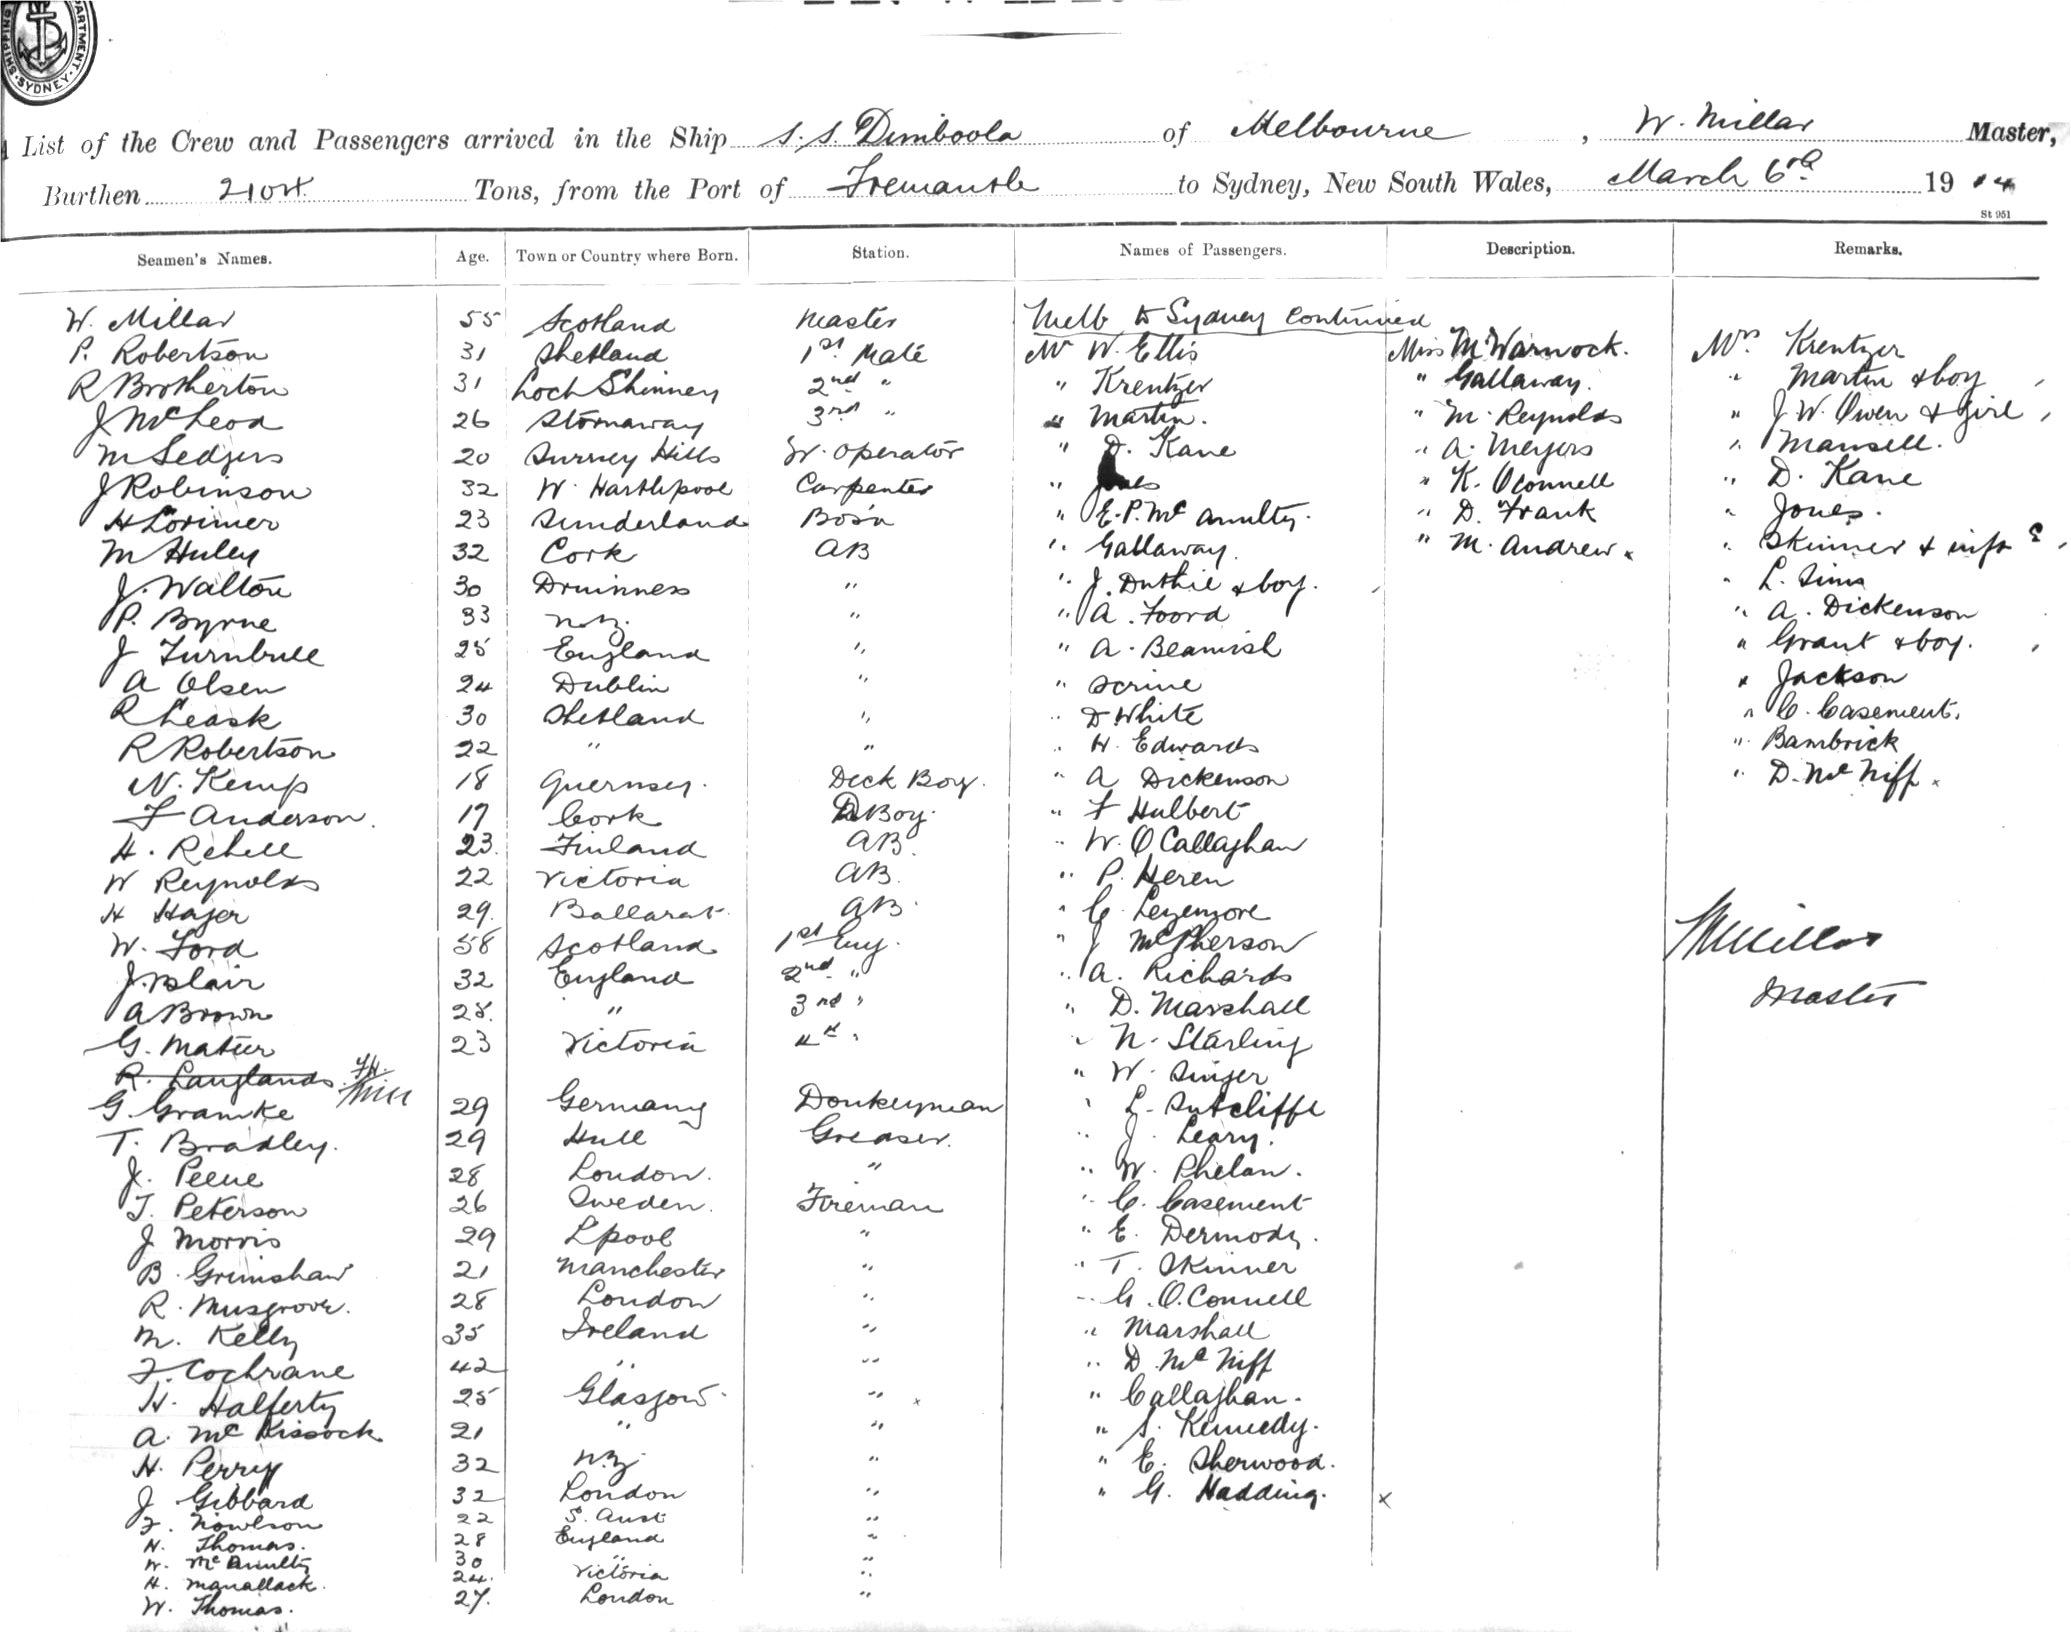 SHIPPING DEPARTMENT SYDNEY
List of the Crew and Passengers arrived in the Ship S.S. Dimboola of Melbourne, W. Millar Master,
Burthen Tons, from the Port of Fremantle to Sydney, New South Wales, March 6th 1914
St 951
Seamen's Names. Age. Town or Country where Born. Station. Names of Passengers. Description. Remarks.
W. Millar 55 Scotland Master Melb to Sydney Continued
P. Robertson 31 Shetland 1st Mate Mr W. Ellis Miss M Warnock. Mrs Krentzer
R Brotherton 31 Loch Shinney 2nd " " Krentzer " Gallaway. " Martin & boy
J McLeod 26 Stornaway 3rd " " Martin. " M. Reynolds " J. W. Owen & girl
M Sedgers 20 Surrey Hills W. Operator " D. Kane " A. Meyers " Mansell.
J Robinson 32 W. Hartlepool Carpenter " Jones " K. OConnell " D. Kane
H Lorimer 23 Sunderland Bos'n " E. P. Mc Anulty. " D. Frank " Jones.
M Huley 32 Cork AB " Gallaway. " M. Andrew x " Skinner & inft
J. Walton 30 Druinness " " J. Duthie & boy. " L. Sims
P. Byrne 33 N.Z. " " A. Foord " A. Dickenson
J Turnbull 25 England " " A. Beamish " Grant & boy.
A Olsen 24 Dublin " " Scrine " Jackson
R Leask 30 Shetland " " D White " C. Casement.
R Robertson 22 " " " H. Edwards " Bambrick
N. Kemp 18 Guernsey. Deck Boy. " A Dickenson " D. Mc Niff x
F Anderson. 17 Cork D Boy. " F Hulbert
H. Rehell 23. Finland AB. " W. O Callaghan
W Reynolds 22 Victoria AB. " P. Heren
H Hajer 29. Ballarat. AB. " C. Lezemore
W. Ford 58 Scotland 1st Eng. " J McPherson W Millar
J. Blair 32 England 2nd " " A. Richards
A Brown 25. " 3rd " " D. Marshall Master
G. Mateer 23 Victoria 4th " " N. Starling
R. Langlands. " W. Singer
G. Gramke 29 Germany Donkeyman " L. Sutcliffe
T. Bradley. 29 Hull Greaser. " J. Leary.
J. Peene 28 London. " " W. Phelan.
T. Peterson 26 Sweden. Fireman " C. Casement
J Morris 29 Lpool " " E. Dermody.
B. Grimshaw 21 Manchester " " T. Skinner
R. Musgrove. 28 London " " G. O.Connell
M. Kelly 35 Ireland " " Marshall
F. Cochrane 42 " " " D. Mc Niff
H. Halferty 25 Glasgow " " Callaghan.
A. Mc Kissock 21 " " " S. Kennedy.
H. Perry 32 N.Z. " " E. Sherwood.
J Gibbard 32 London " " G. Hadding. x
F. Nowlson 22 S. Aust "
H. Thomas. 28 England "
W. Mc Anulty 30 " "
H. Manallack. 24. Victoria "
W. Thomas. 27. London "